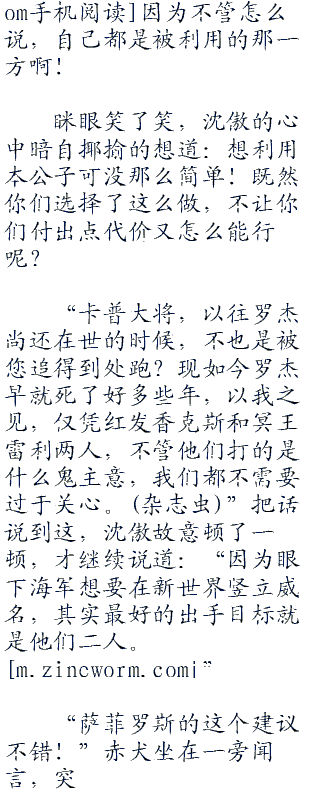 om手机阅读]因为不管怎么
说，自己都是被利用的那一
方啊！
眯眼笑了笑，沈傲的心
中暗自揶揄的想道：想利用
本公子可没那么简单！既然
你们选择了这么做，不让你
们付出点代价又怎么能行
呢？
“卡普大将，以往罗杰
尚还在世的时候，不也是被
您追得到处跑？现如今罗杰
早就死了好多些年，以我之
见，仅凭红发香克斯和冥王
雷利两人，不管他们打的是
什么鬼主意，我们都不需要
过于关心。(杂志虫)”把话
说到这，沈傲故意顿了一
顿，才继续说道：“因为眼
下海军想要在新世界竖立威
名，其实最好的出手目标就
是他们二人。
[m.zincworm.com¡”
“萨菲罗斯的这个建议
不错！”赤犬坐在一旁闻
言，突